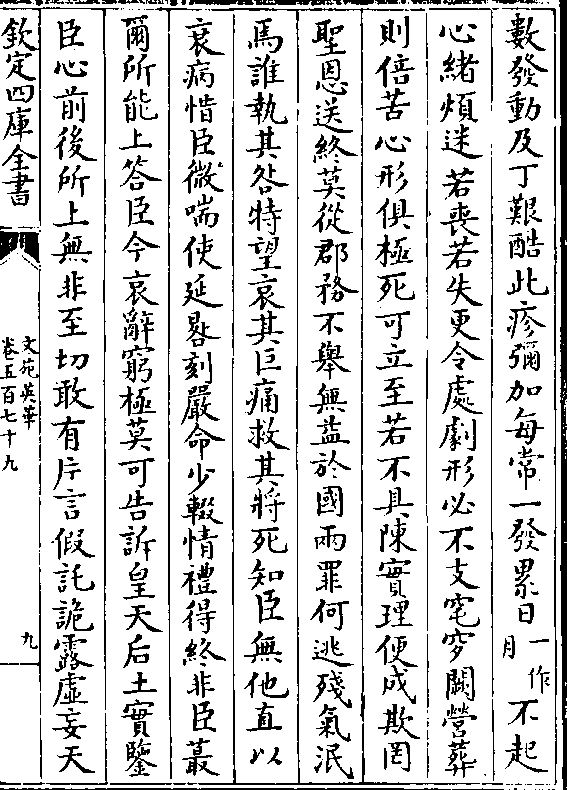 數發動及丁艱酷此疹彌加每常一發累日一作月不起
心緒煩迷若喪若失更令處劇形必不支窀穸闕營葬
則倍苦心形俱極死可立至若不具陳實理便成欺罔
聖恩送終莫從郡務不舉無益於國兩罪何逃殘氣泯
焉誰執其咎特望哀其巨痛救其將死知臣無他直以
衰病惜臣微喘使延晷刻嚴命少輟情禮得終非臣蕞
爾所能上答臣今哀辭窮極莫可告訴皇天后土實鑒
臣心前後所上無非至切敢有片言假託詭露虛妄天
欽定四庫全書
文苑英華
卷五百七十九
九